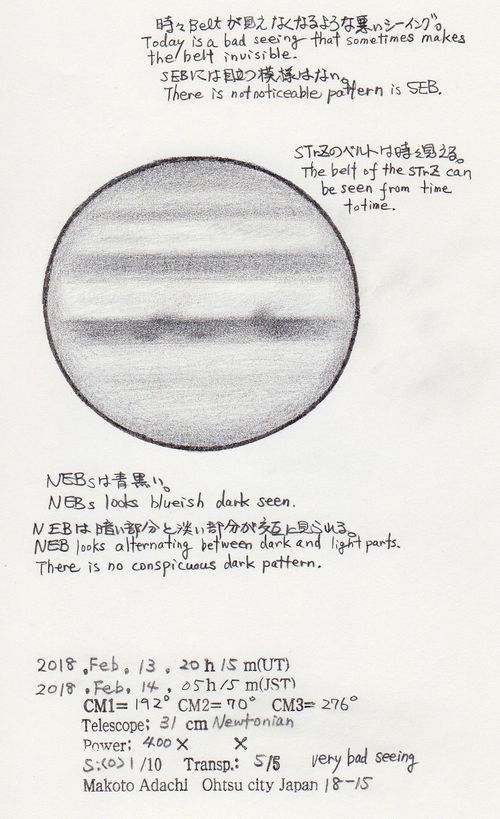 時々Beltが見えなくなるような悪いシーイング。
Today is a bad seeing that sometimes makes
the belt invisible.
SEBには目立つ模様はない。
There is not noticeable pattern is SEB.
STrZのベルトは時々見える。
The belt of the STrZ can
be seen from time
to time.
NEBsは青黒い。
NEBs looks blueish dark seen.
NEBは暗い部分と淡い部分が交互に見られる。
NEB looks alternating between dark and light parts.
There is no conspicuous dark pattern.
2018 . Feb. 13 , 20 h 15 m(UT)
2018 . Feb. 14 , 05 h 15 m(JST)
CM1= 192° CM2= 70° CM3= 276°
Telescope; 31 cm Newtonian
Power: 400 × ×
S:(0)1/10 Transp.: 5/5 very bad seeing
Makoto Adachi Ohtsu city Japan 18-15